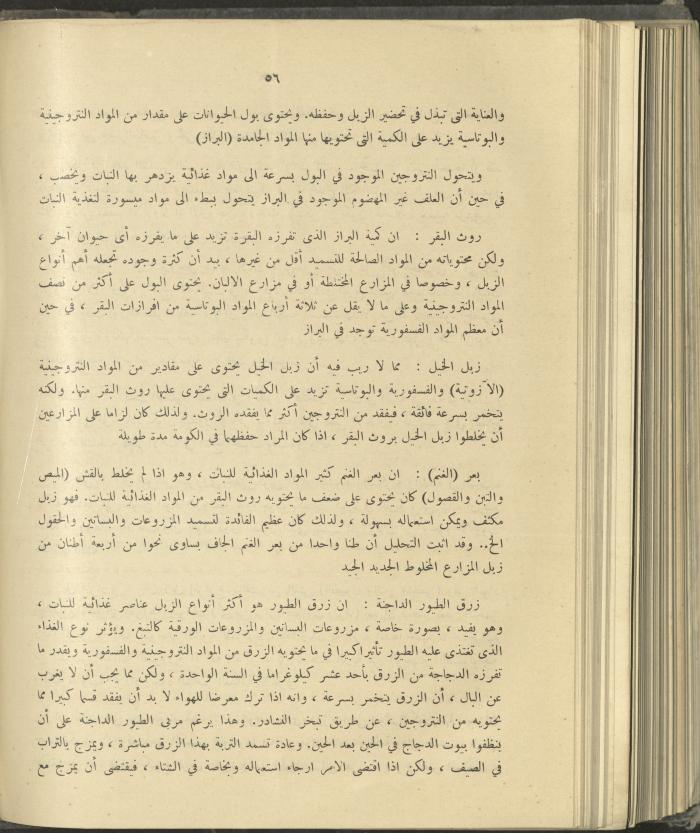 ٥٦
والعناية التى تبذل في تحضير الزبل وحفظه. ويحتوى بول الحيوانات على مقدار من المواد النتروجينية
والبوتاسية يزيد على الكمية التى تحتويها منها المواد الجامدة (البراز)
ويتحول النتروجين الموجود في البول بسرعة الى مواد غذائية يزدهر بها النبات ويخصب ،
في حين أن العلف غير المهضوم الموجود في البراز يتحول ببطء الى مواد ميسورة لتغذية النبات
روث البقر : ان كمية البراز الذى تفرزه البقرة تزيد على ما يفرزه أى حيوان آخر ،
ولكن محتوياته من المواد الصالحة للتسميد أقل من غيرها ، بيد أن كثرة وجوده تجعله أهم أنواع
الزبل ، وخصوصا في المزارع المختلطة أو في مزارع الالبان. يحتوى البول على أكثر من نصف
المواد النتروجينية وعلى ما لا يقل عن ثلاثة أرباع المواد البوتاسية من افرازات البقر ، في حين
أن معظم المواد الفسفورية توجد في البراز
زبل الخيل : مما لا ريب فيه أن زبل الخيل يحتوى على مقادير من المواد النتروجينية
(الآزوتية) والفسفورية والبوتاسية تزيد على الكميات التى يحتوى عليها روث البقر منها. ولكنه
يتخمر بسرعة فائقة ، فيفقد من النتروجين أكثر مما يفقده الروث. ولذلك كان لزاما على المزارعين
أن يخلطوا زبل الخيل بروث البقر ، اذا كان المراد حفظهما في الكومة مدة طويلة
بعر (الغنم) : ان بعر الغنم كثير المواد الغذائية للنبات ، وهو اذا لم يخلط بالقش (الميص
والتبن والقصول) كان يحتوى على ضعف ما يحتويه روث البقر من المواد الغذائية للنبات. فهو زبل
مكثف ويمكن استعماله بسهولة ، ولذلك كان عظيم الفائدة لتسميد المزروعات والبساتين والحقول
الخ.. وقد اثبت التحليل أن طنا واحدا من بعر الغنم الجاف يساوى نحوا من أربعة أطنان من
زبل المزارع المخلوط الجديد الجيد
زرق الطيور الداجنة : ان زرق الطيور هو أكثر أنواع الزبل عناصر غذائية للنبات ،
وهو يفيد ، بصورة خاصة ، مزروعات البساتين والمزروعات الورقية كالتبغ. ويؤثر نوع الغذاء
الذى تغتذى عليه الطيور تأثيرا كبيرا في ما يحتويه الزرق من المواد النتروجينية والفسفورية ويقدر ما
تفرزه الدجاجة من الزرق بأحد عشر كيلوغراما في السنة الواحدة ، ولكن مما يجب أن لا يغرب
عن البال ، أن الزرق يتخمر بسرعة ، وانه اذا ترك معرضا للهواء لا بد أن يفقد قسما كبيرا مما
يحتويه من النتروجين ، عن طريق تبخر النشادر. وهذا يرغم مربى الطيور الداجنة على أن
ينظفوا بيوت الدجاج في الحين بعد الحين. وعادة تسمد التربة بهذا الزرق مباشرة ، ويمزج بالتراب
في الصيف ، ولكن اذا اقتضى الامر ارجاء استعماله وبخاصة في الشتاء ، فيقتضى أن يمزج مع